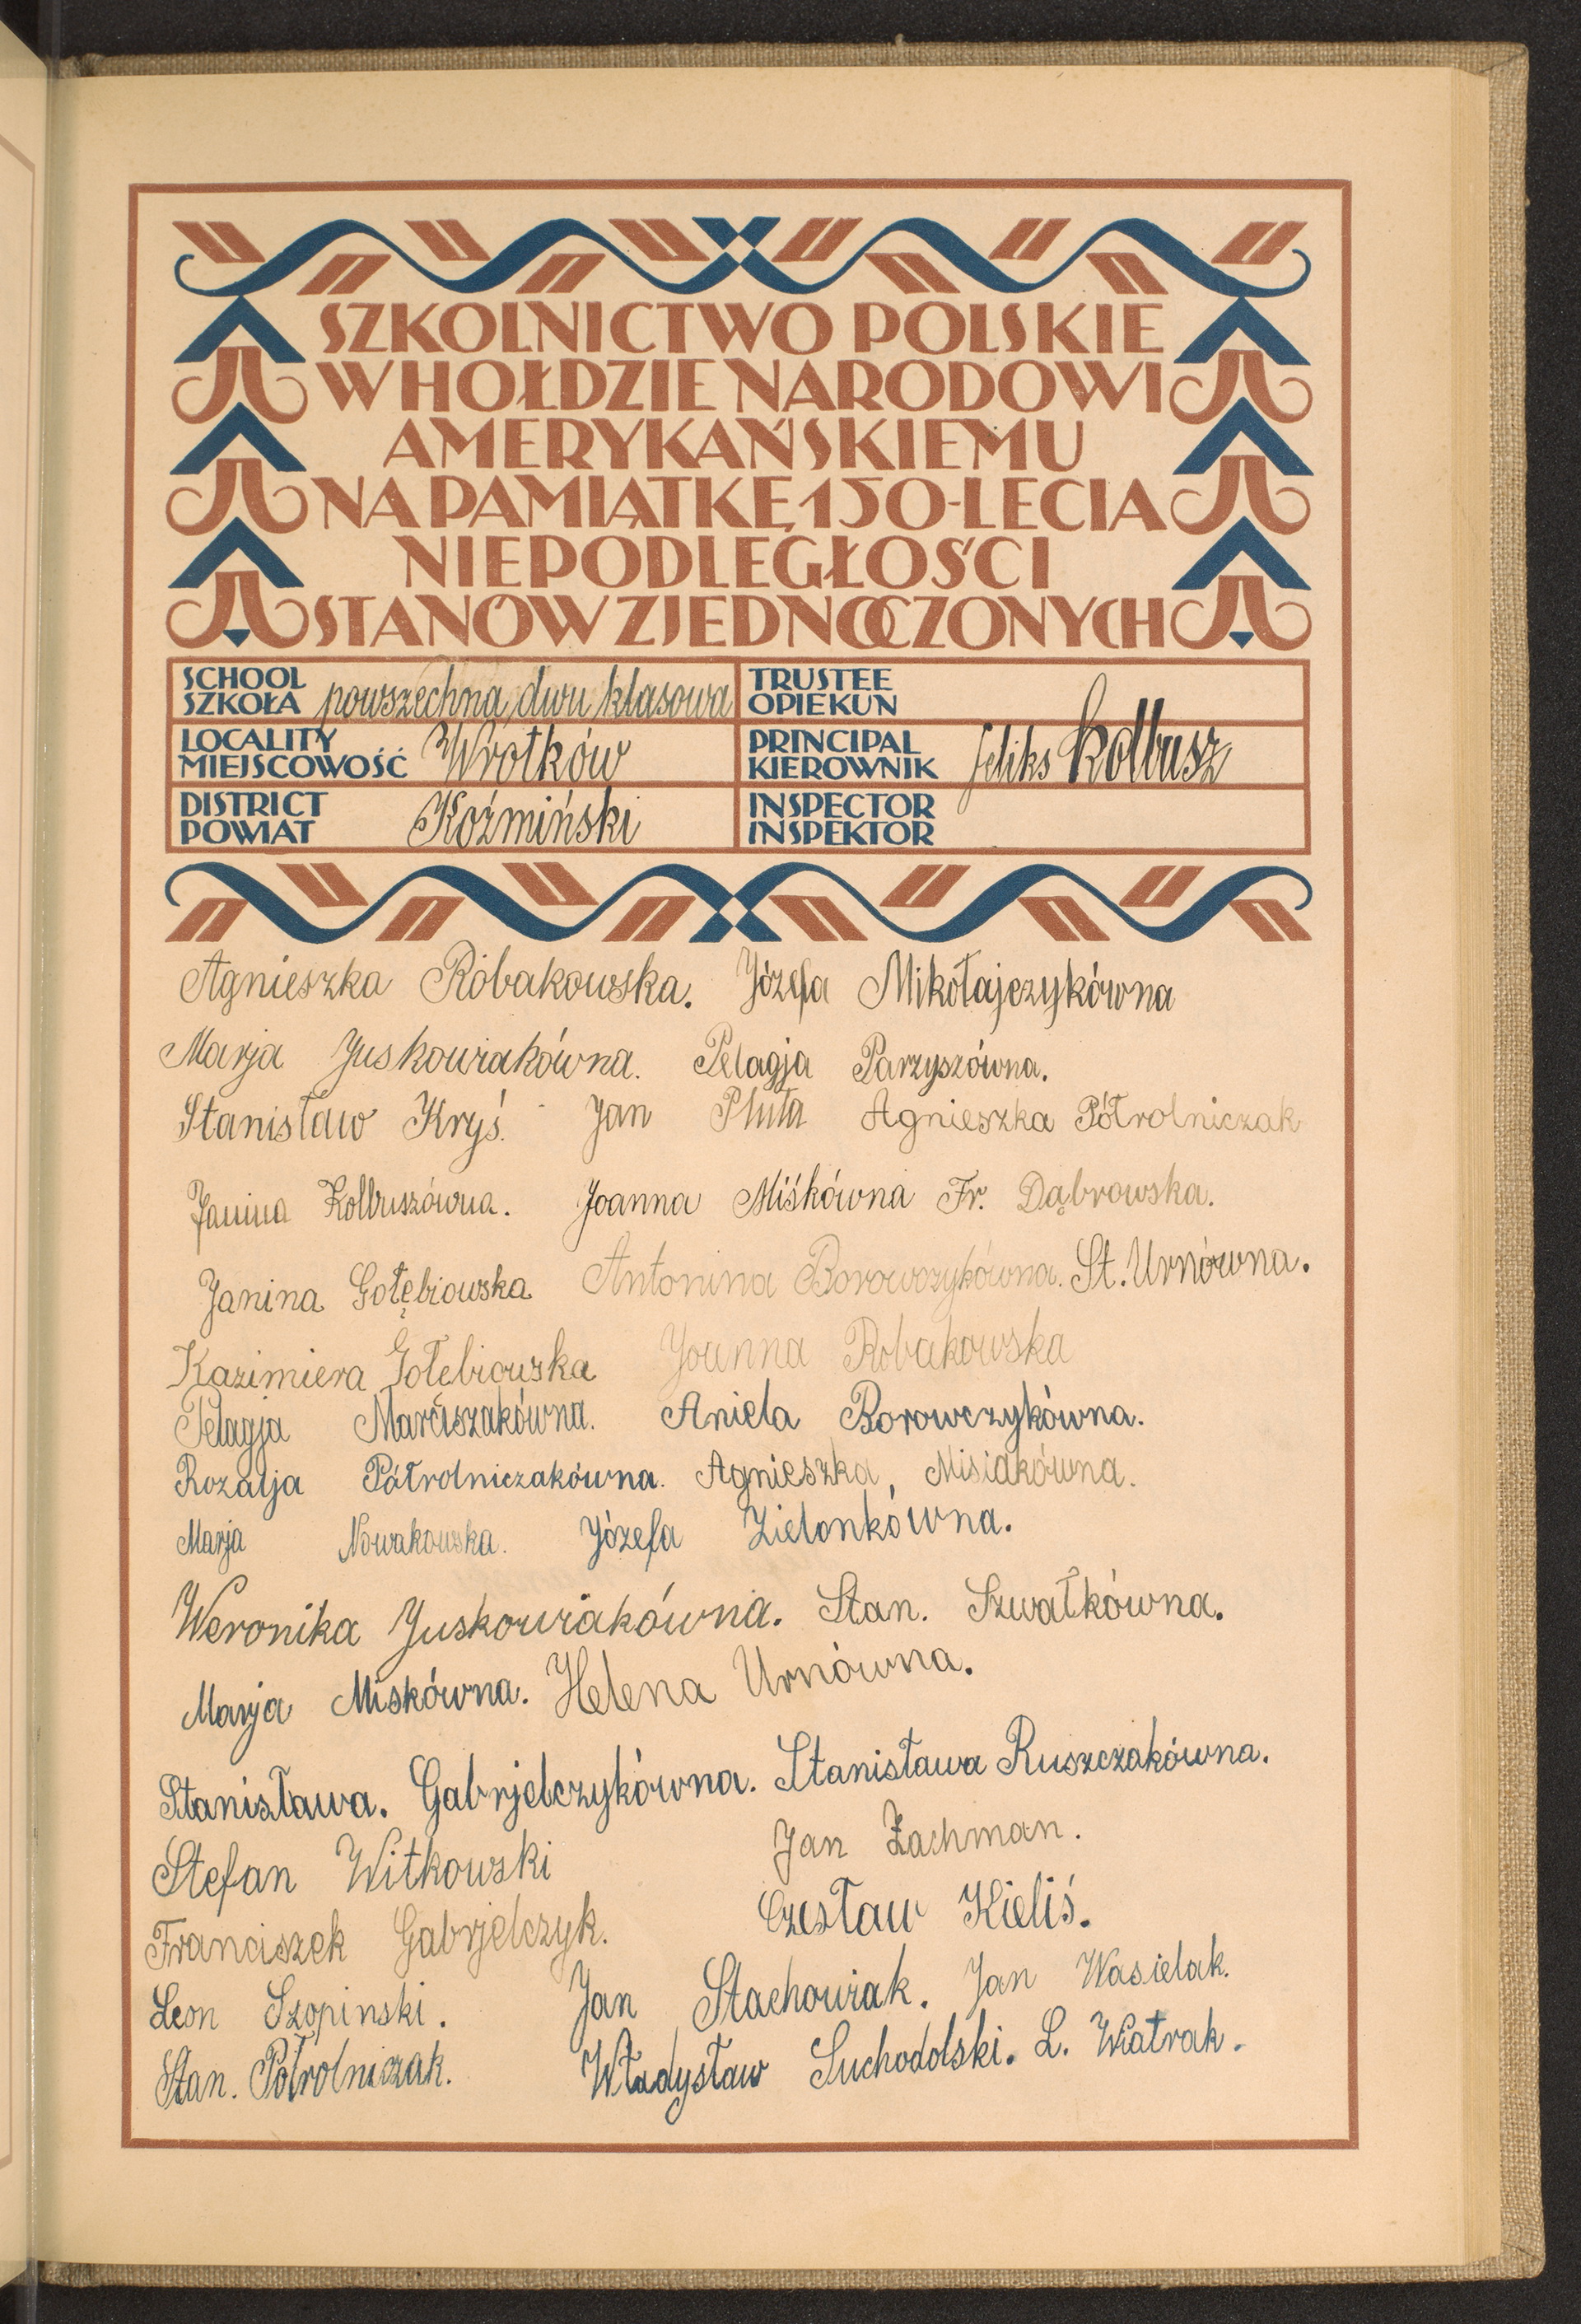 SZKOLNICTWO POLSKIE
W HOŁDZIE NARODOWI
AMERYKAŃSKIEMU
NA PAMIĄTKĘ 150-LECIA
NIEPODLEGŁOŚCI
STANÓW ZJEDNOCZONYCH
SCHOOL
SZKOŁA powszechna dwu klasowa
TRUSTEE
OPIEKUN
LOCALITY
MIEJSCOWOŚĆ Wrotków
PRINCIPAL
KIEROWNIK feliks Kolbusz
DISTRICT
POWIAT Koźmiński
INSPECTOR
INSPEKTOR
Agnieszka Robakowska. Józefa Mikołajczykówna
Marja Juskowiakówna. Pelagja Parzyszówna.
Stanisław Kryś. Jan Pluta Agnieszka Półrolniczak
Janina Kolbuszówna. Joanna Miśkówna Fr. Dąbrowska.
Janina Gołębiowska Antonina Borowczykówna. St. Urnówna.
Kazimiera Gołębiowska Joanna Robakowska
Pelagja Marciszakówna. Aniela Borowczykówna.
Rozalja Półrolniczakówna. Agnieszka Misiakówna.
Marja Nowakowska. Józefa Zielonkówna.
Weronika Juskowiakówna. Stan. Szwałkówna.
Marja Miskówna. Helena Urnówna.
Stanisława. Gabrjelczykówna. Stanisława Ruszczakówna.
Stefan Witkowski Jan Zachman.
Franciszek Gabrjelczyk. Czesław Kieliś.
Leon Szopinski. Jan Stachowiak. Jan Wasielak.
Stan. Półrolniczak. Władysław Suchodolski. L. Wiatrak.